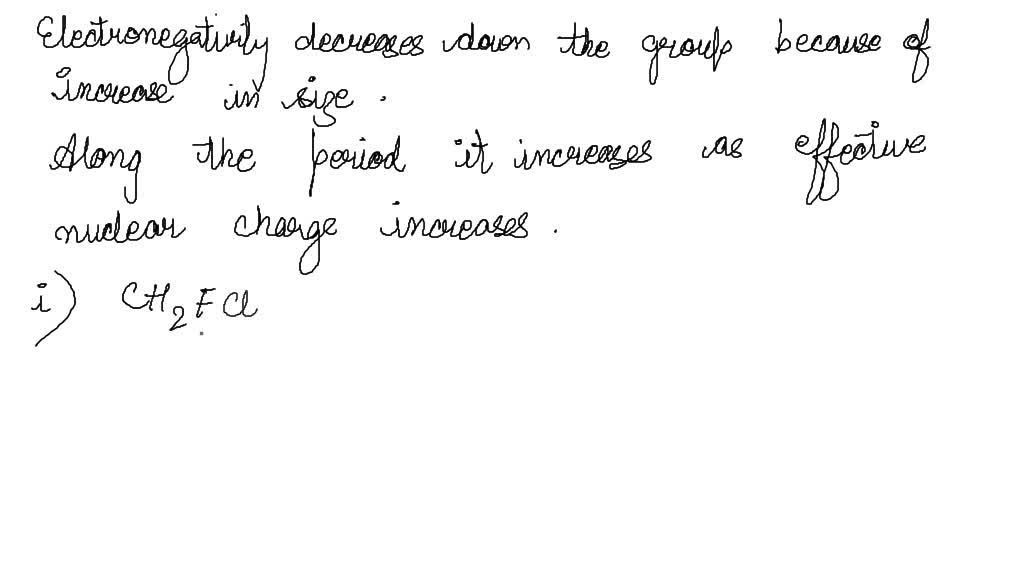 Electronegativity decreases down the group because of
increase in size.
Along the period it increases as effective
nuclear charge increases.
i) CH₂FCl